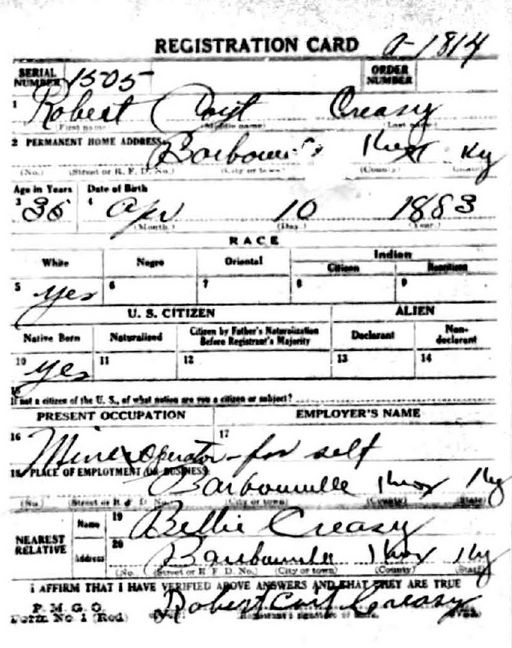 REGISTRATION CARD a-1814
SERIAL NUMBER 1505 ORDER NUMBER
1 Robert Creasy
First name (Middle name) (Last name)
2 PERMANENT HOME ADDRESS Ky
(No.) (Street or R. F. D. No.) (City or town) (County) (State)
Age in Years Date of Birth
3 35 4 Apr 10 1883
(Month.) (Day.) (Year.)
RACE
White Negro Oriental Indian
Citizen Noncitizen
5 yes 6 7 8 9
U. S. CITIZEN ALIEN
Native Born Naturalized Citizen by Father's Naturalization Before Registrant's Majority Declarant Non-declarant
10 yes 11 12 13 14
15
If not a citizen of the U. S., of what nation are you a citizen or subject?
PRESENT OCCUPATION EMPLOYER'S NAME
16 Mine operator - for self 17
18 PLACE OF EMPLOYMENT OR BUSINESS
Barbourville Knox Ky
(No.) (Street or R. F. D. No.) (City or town) (County) (State)
NEAREST RELATIVE Name 19 Bettie Creasy
Address 20 Barbourville Knox Ky
(No.) (Street or R. F. D. No.) (City or town) (County) (State)
I AFFIRM THAT I HAVE VERIFIED ABOVE ANSWERS AND THAT THEY ARE TRUE
P. M. G. O.
Form No. 1 (Red) Robert Creasy